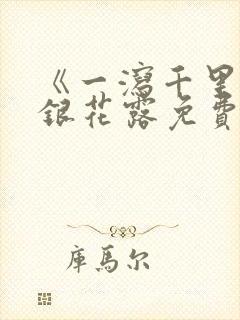 《一瀉千里
銀花露免費
庫馬尔